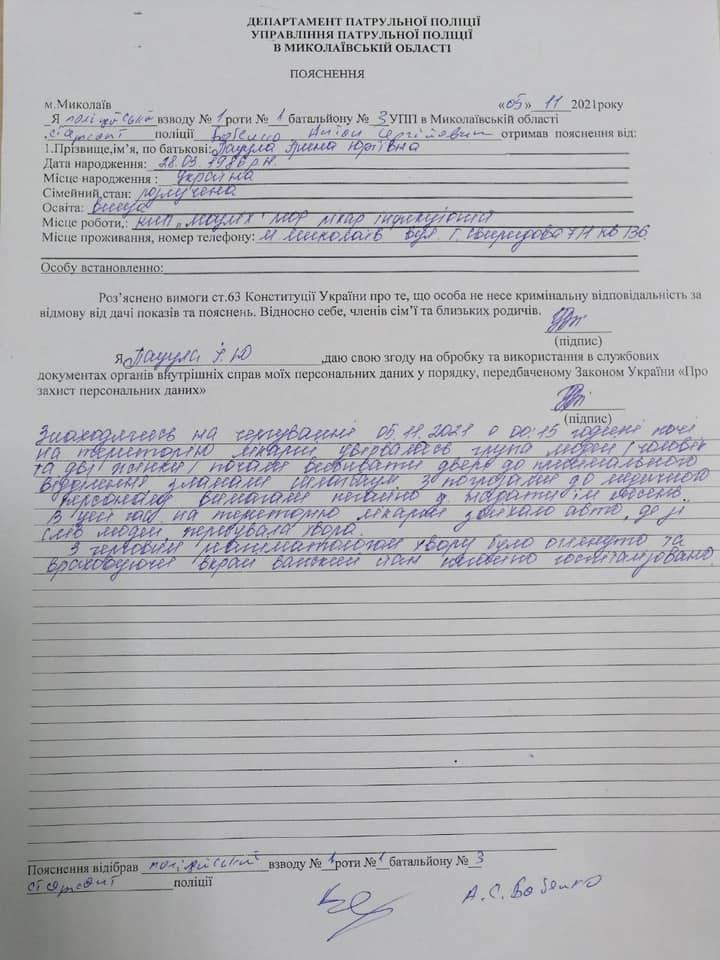 ДЕПАРТАМЕНТ ПАТРУЛЬНОЇ ПОЛІЦІЇ
УПРАВЛІННЯ ПАТРУЛЬНОЇ ПОЛІЦІЇ
В МИКОЛАЇВСЬКІЙ ОБЛАСТІ
ПОЯСНЕННЯ
м.Миколаїв «05» 11 2021року
Я поліцейський взводу № 1 роти № 1 батальйону № 3 УПП в Миколаївській області
сержант поліції Бабенко Антон Сергійович отримав пояснення від:
1.Прізвище,ім'я, по батькові: Ірина Юріївна
Дата народження: 28.03.1986 р.н.
Місце народження : Україна
Сімейний стан: розлучена
Освіта: вища
Місце роботи,: КНП лікар
Місце проживання, номер телефону: м Миколаїв вул. Г. Свиридова 7/1 кв 136
Особу встановленно:
Роз'яснено вимоги ст.63 Конституції України про те, що особа не несе кримінальну відповідальність за
відмову від дачі показів та пояснень. Відносно себе, членів сім'ї та близьких родичів.
(підпис)
Я І. Ю ,даю свою згоду на обробку та використання в службових
документах органів внутрішніх справ моїх персональних даних у порядку, передбаченому Законом України «Про
захист персональних даних»
(підпис)
Знаходячись на чергуванні 05.11.2021 о 00:15 годині ночі
на територію лікарні увірвалась група людей / чоловік
та дві жінки / почали вибивати двері до приймального
відділення зламали З погрозами до медичного
персоналу вимагали негайно надати їм кисень.
В цей час на територію лікарні заїхало авто, де зі
слів людей, перебувала хвора.
З черговим реаніматологом хвору було оглянуто та
враховуючи вкрай важкий стан негайно госпіталізовано.
Пояснення відібрав поліцейський взводу № 1 роти № 1 батальйону № 3
сержант поліції
А.С. Бабенко